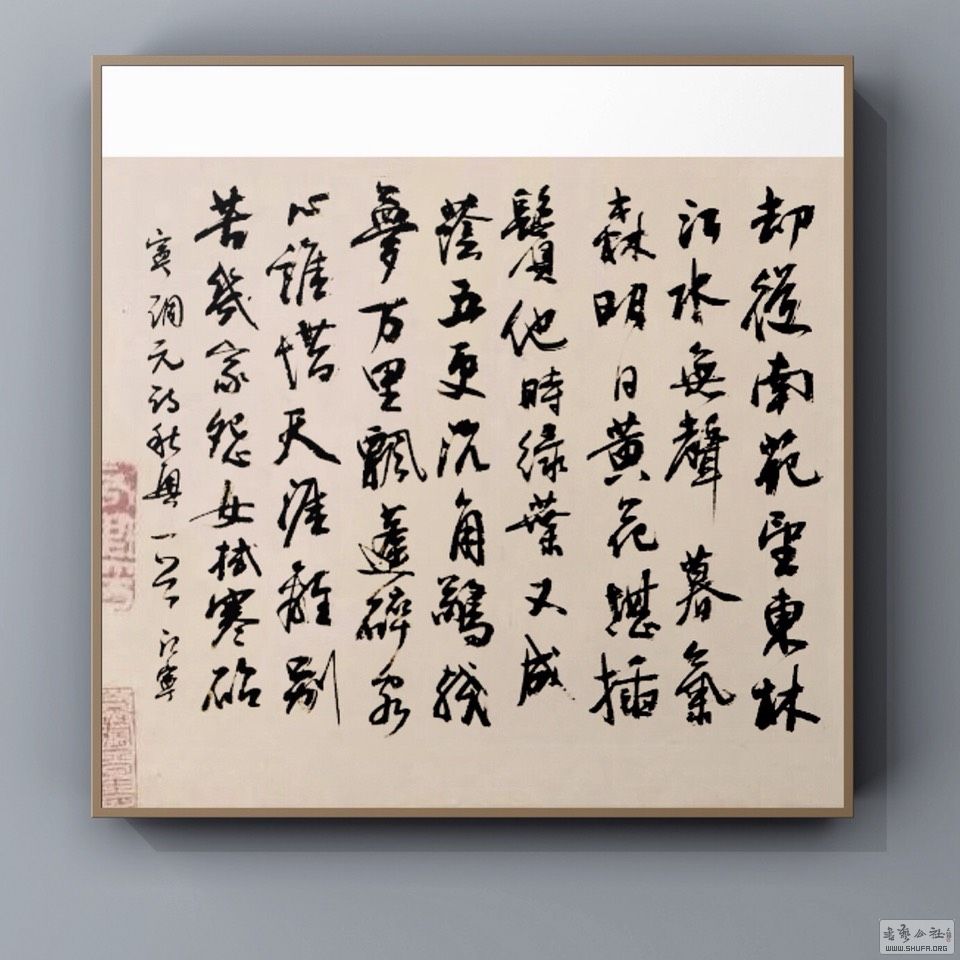 却從南苑望東林
江水無聲暮氣
森明日黃花堪插
鬢他時綠葉又成
蔭五更沉角驚殘
夢万里飄蓬碎客
心誰惜天涯離別
苦幾家怨女拭寒砧
寧調元詩秋興一 江寧
书艺公社
WWW.SHUFA.ORG